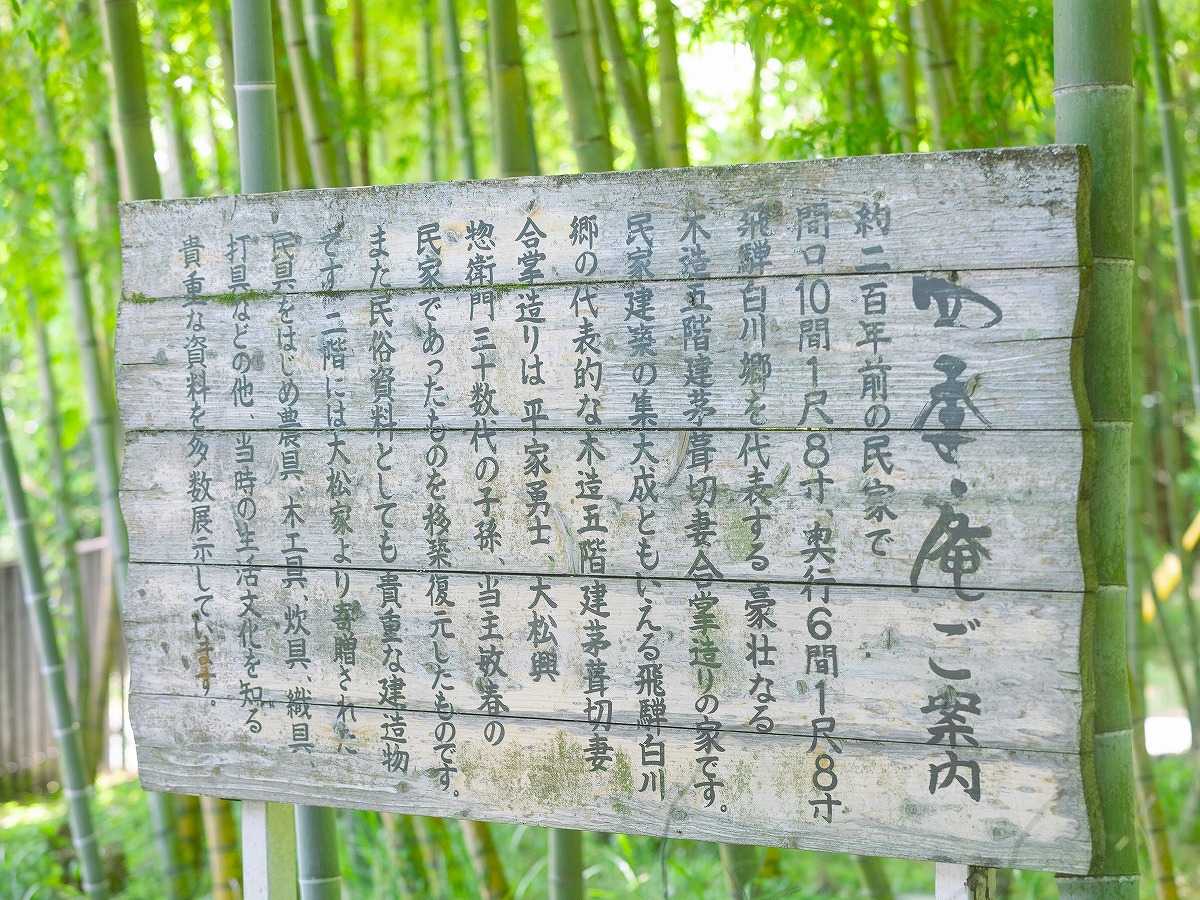 四季・庵ご案内
約二百年前の民家で
間口10間1尺8寸、奥行6間1尺8寸
飛騨白川郷を代表する豪壮なる
木造五階建茅葺切妻合掌造りの家です。
民家建築の集大成ともいえる飛騨白川
郷の代表的な木造五階建茅葺切妻
合掌造りは平家勇士、大松興
惣衛門三十数代の子孫、当主政春の
民家であったものを移築復元したものです。
また民俗資料としても貴重な建造物
です。二階には大松家より寄贈された
民具をはじめ農具、木工具、炊具、織具、
打具などの他、当時の生活文化を知る
貴重な資料を多数展示しています。